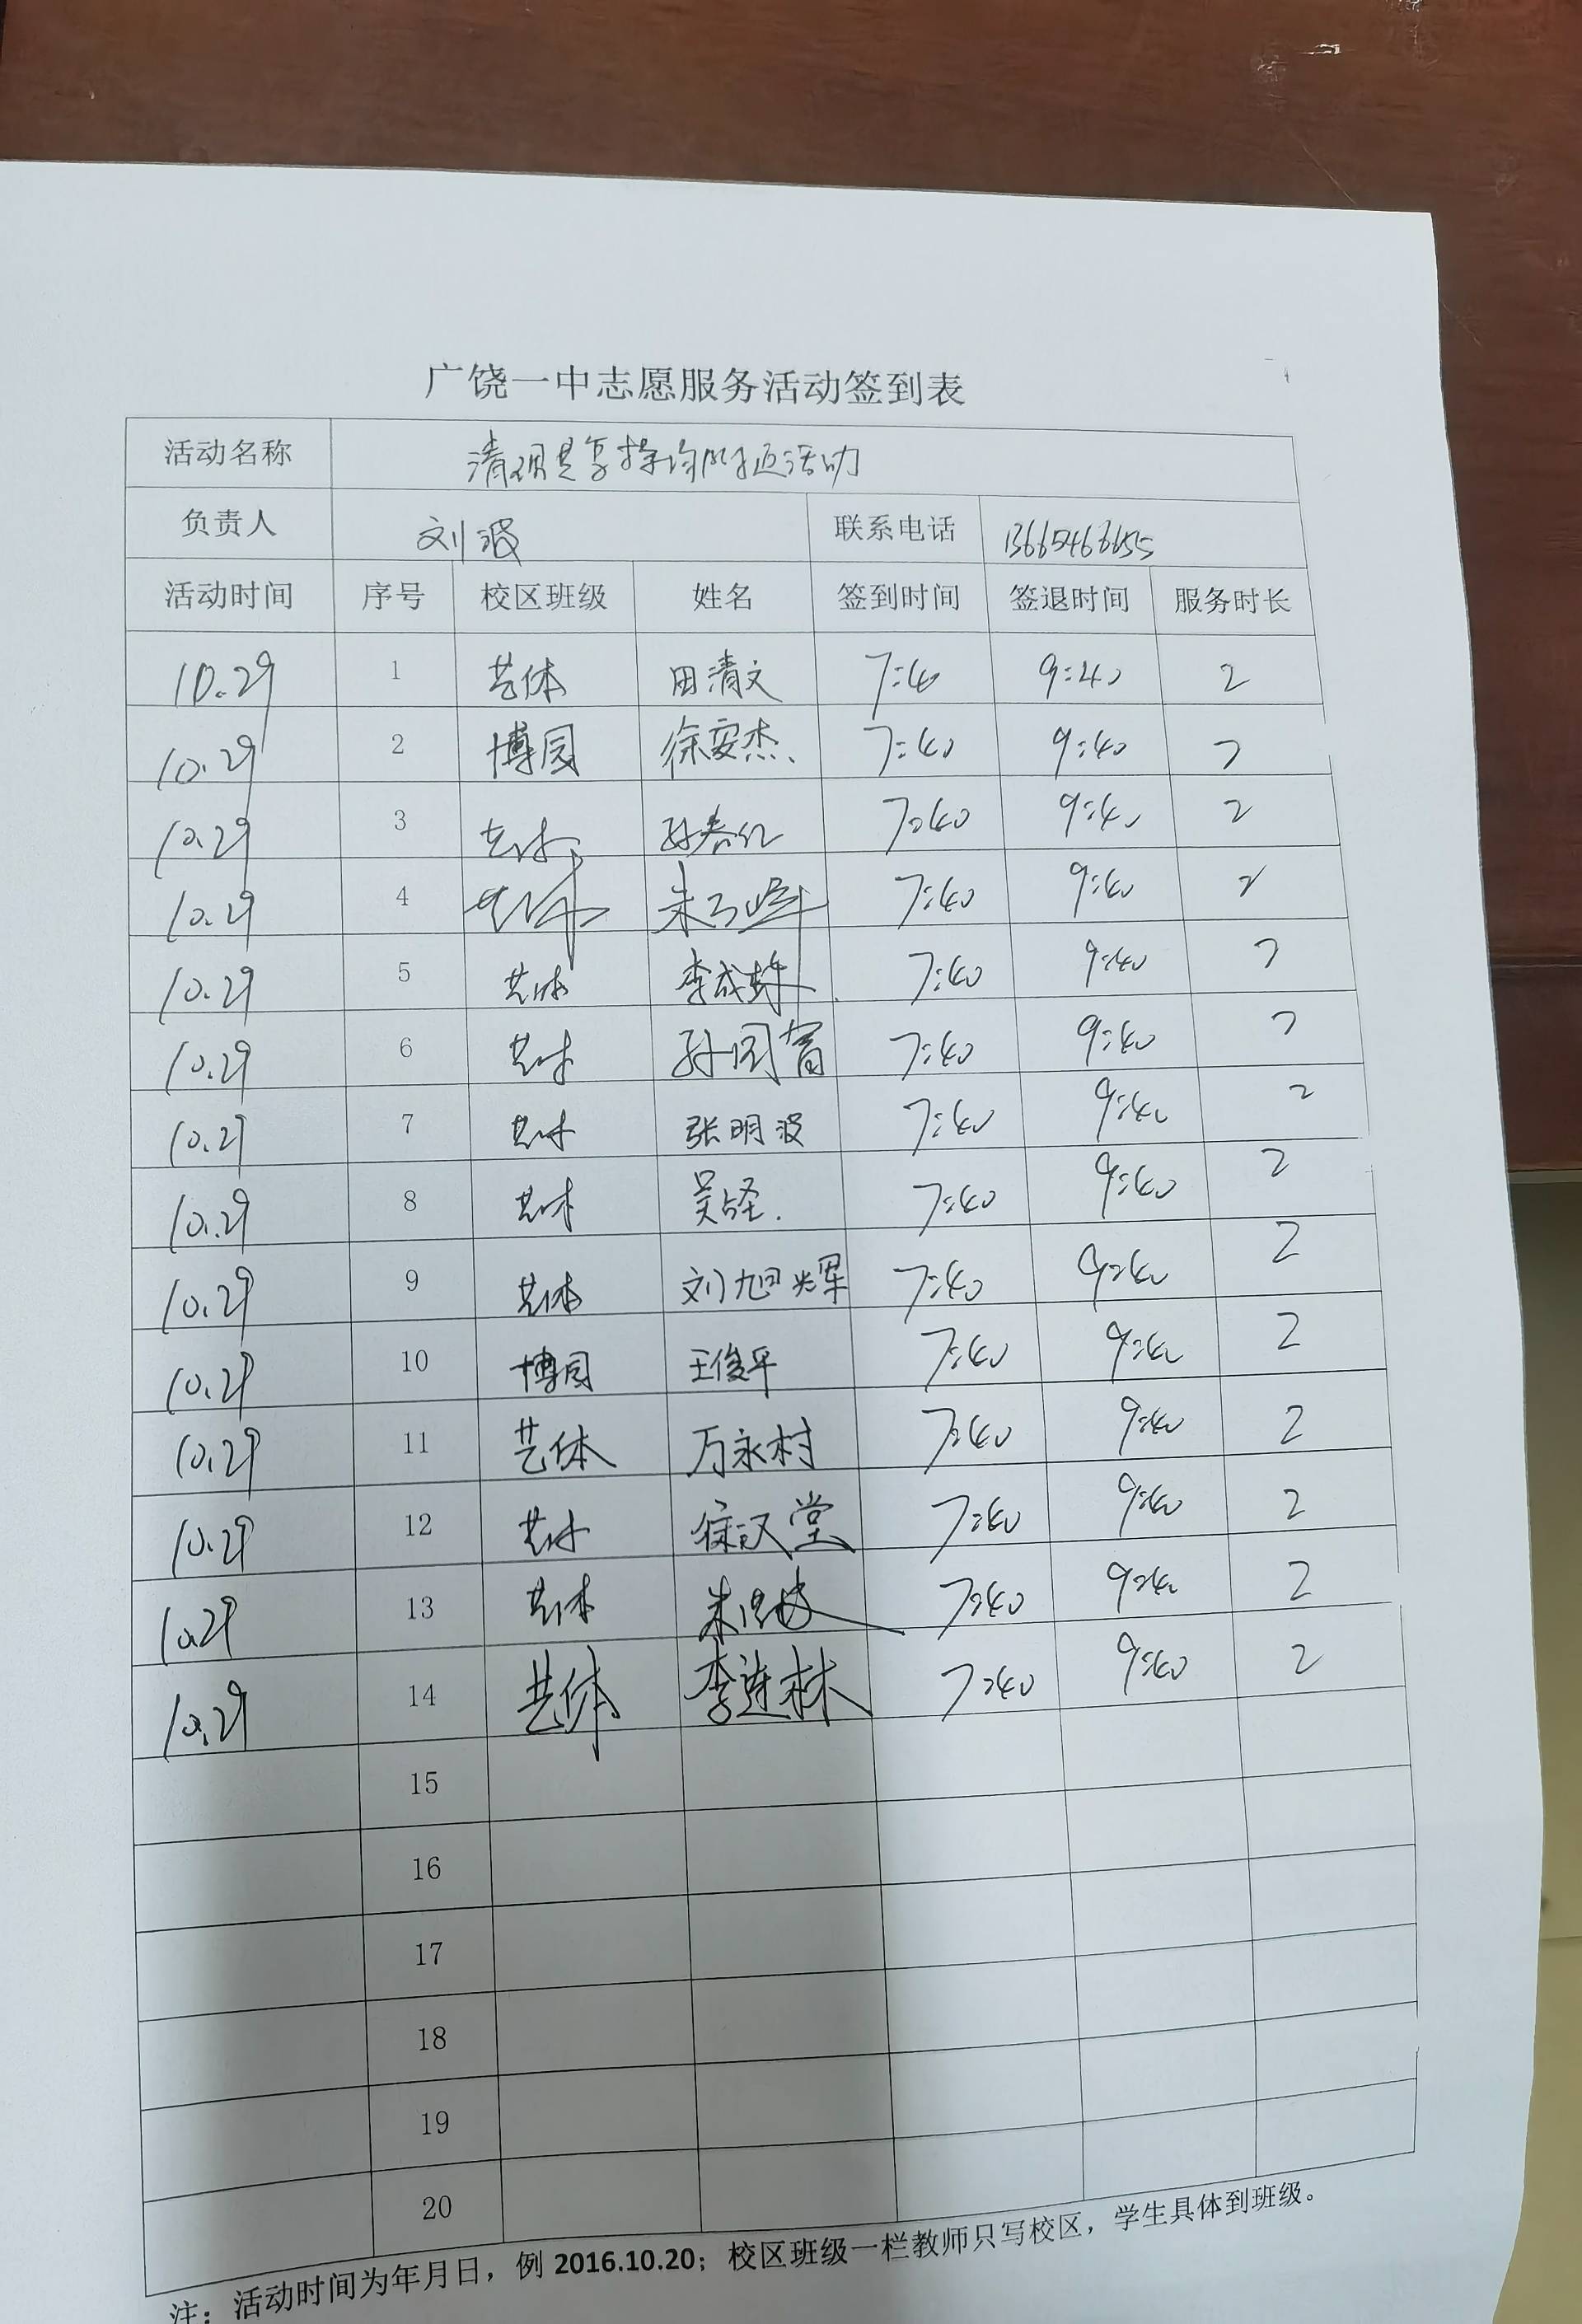 广饶一中志愿服务活动签到表
活动名称 活动
负责人 刘波 联系电话
活动时间 序号 校区班级 姓名 签到时间 签退时间 服务时长
10.29 1 艺体 田清文 7:40 9:40 2
10.29 2 博园 徐安杰 7:40 9:40 2
10.29 3 艺体 孙春红 7:40 9:40 2
10.29 4 艺体 7:40 9:40 2
10.29 5 艺体 7:40 9:40 2
10.29 6 艺体 孙同富 7:40 9:40 2
10.29 7 艺体 张明波 7:40 9:40 2
10.29 8 艺体 7:40 9:40 2
10.29 9 艺体 刘旭辉 7:40 9:40 2
10.29 10 博园 王俊平 7:40 9:40 2
10.29 11 艺体 万永村 7:40 9:40 2
10.29 12 艺体 徐汉堂 7:40 9:40 2
10.29 13 艺体 7:40 9:40 2
10.29 14 艺体 李连林 7:40 9:40 2
15
16
17
18
19
20
注：活动时间为年月日，例 2016.10.20；校区班级一栏教师只写校区，学生具体到班级。